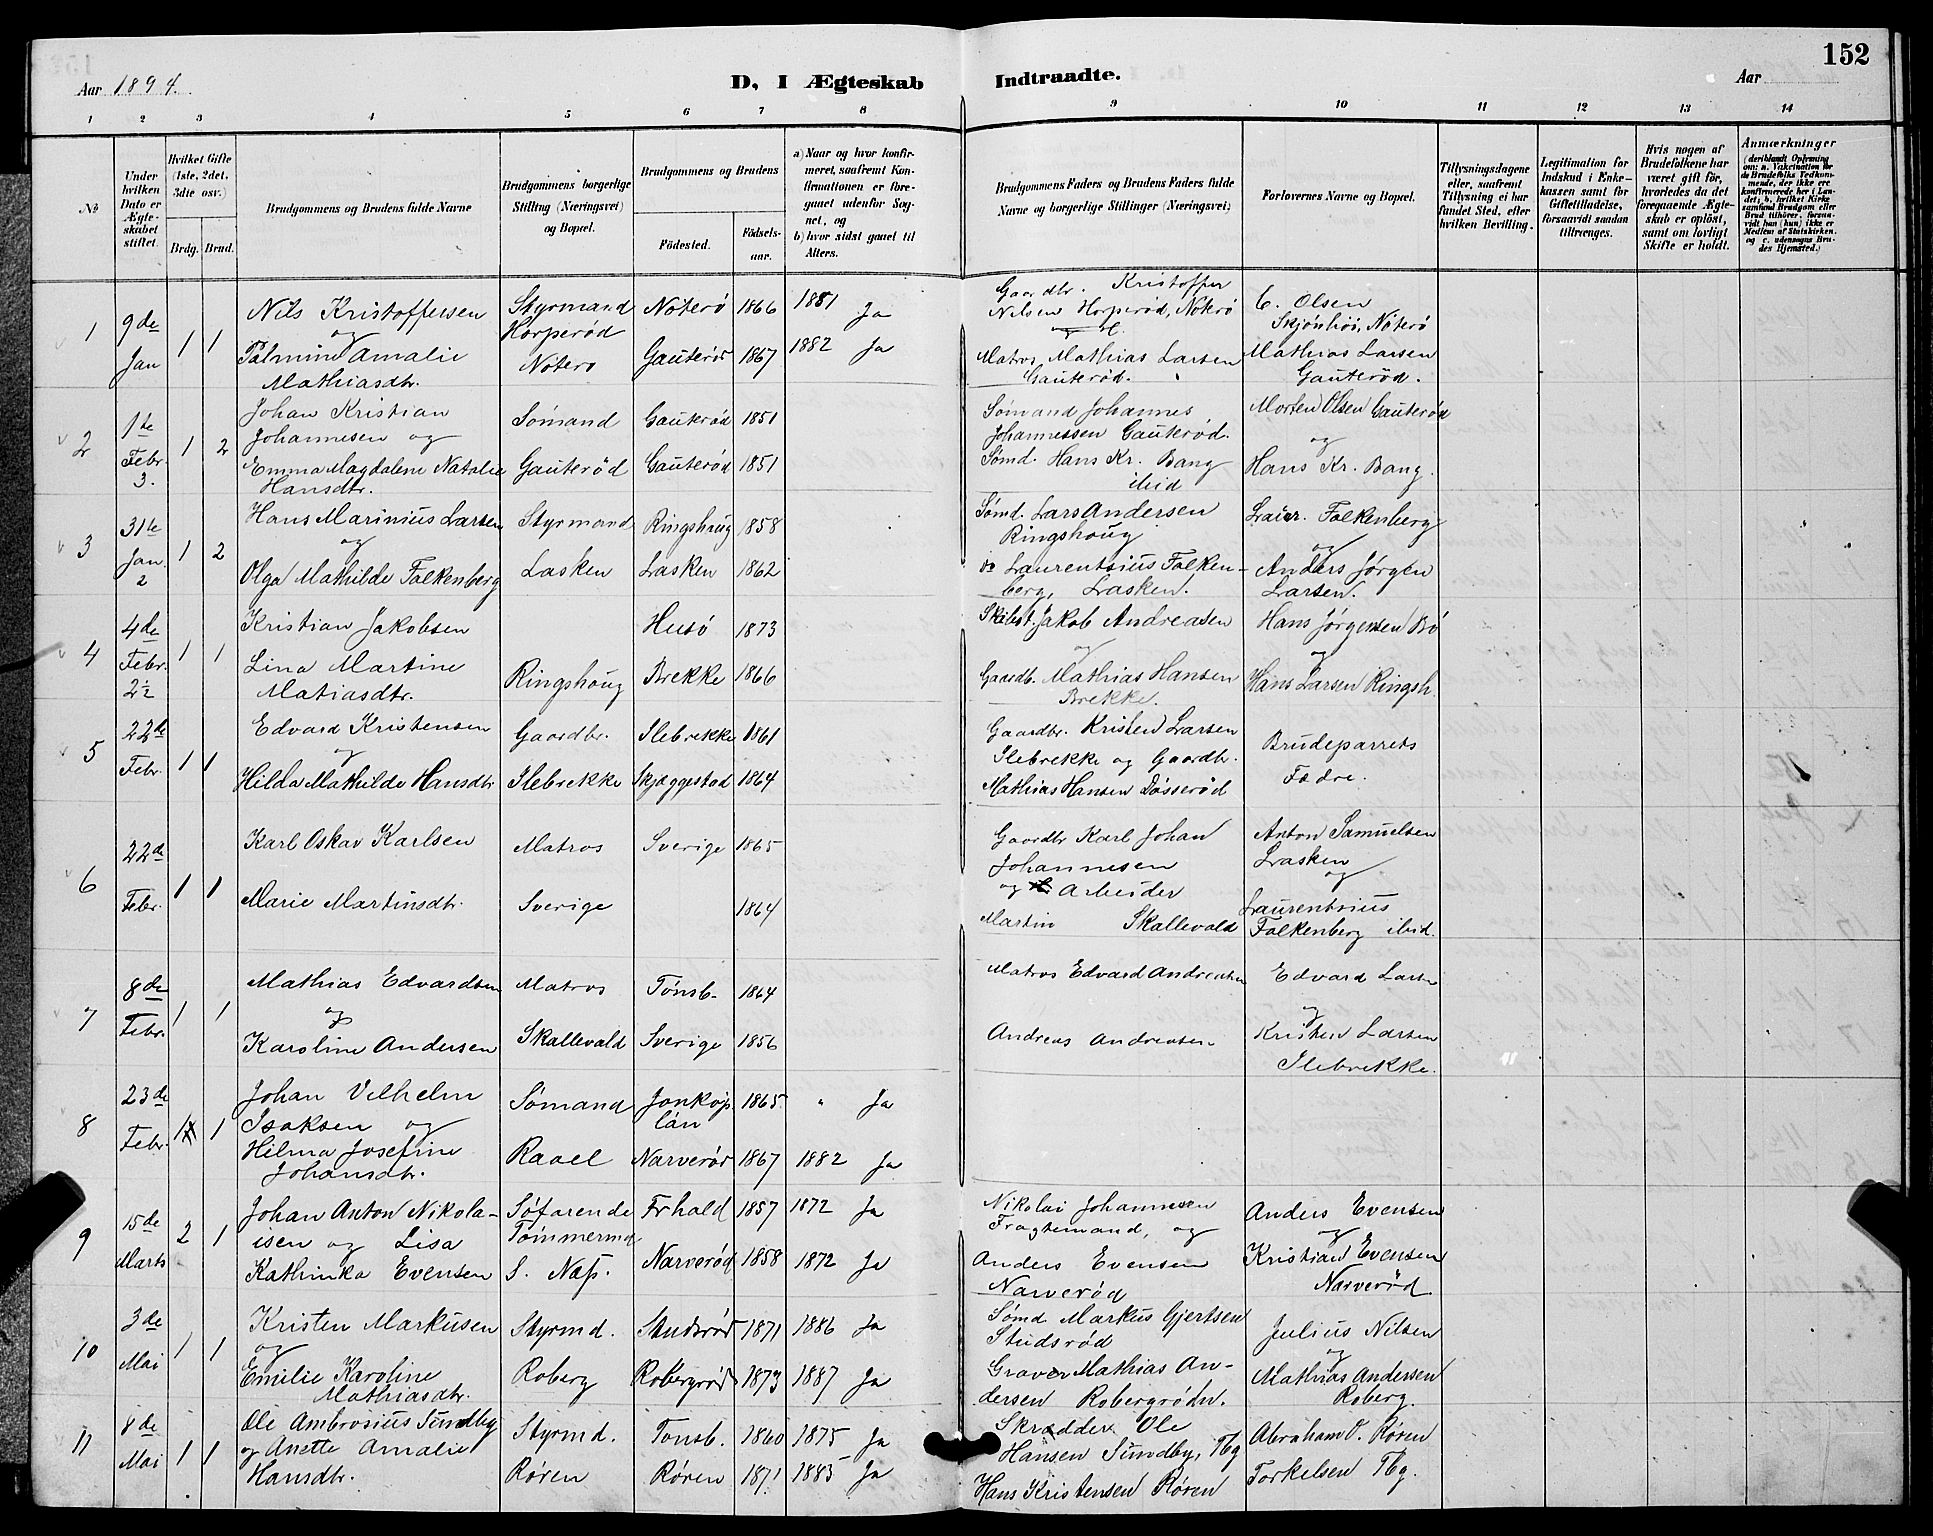 152
Aar 1894.
D, I Ægteskab Indtraadte.
Aar
1 2 3 4 5 6 7 8 9 10 11 12 13 14
№
Under hvilken Dato er Ægteskabet stiftet.
Hvilket Gifte (1ste, 2det, 3die osv.)
Brdg. Brud.
Brudgommens og Brudens fulde Navne
Brudgommens borgerlige Stilling (Næringsvei) og Bopæl.
Brudgommens og Brudens
Fødested.
Fødselsaar.
a) Naar og hvor konfirmeret, saafremt Konfirmationen er foregaaet udenfor Sognet, og
b) hvor sidst gaaet til Alters.
Brudgommens Faders og Brudens Faders fulde Navne og borgerlige Stillinger (Næringsvei)
Forlovernes Navne og Bopæl.
Tillysningsdagene eller, saafremt Tillysning ei har fundet Sted, efter hvilken Bevilling.
Legitimation for Indskud i Enkekassen samt for Giftetilladelse, forsaavidt saadan tiltrænges.
Hvis nogen af Brudefolkene har været gift før, hvorledes da det foregaaende Ægteskab er opløst, samt om lovligt Skifte er holdt.
Anmærkninger
(deriblandt Oplysning om: a. Vakcination for de Brudefolks Vedkommende, der ikke ere konfirmerede her i Landet; b. hvilket Kirkesamfund Brudgom eller Brud tilhører, forsaavidt han (hun) ikke er Medlem af Statskirken, og c. udensogns Brudes Hjemsted.)
1
9de Jan
1 1
Nils Kristoffersen
og
Palmine Amalie
Mathiasdtr.
Styrmand
Horperød
Nøterø
Nøterø 1866 1881 Ja
Gauterød 1867 1882 Ja
Gaardbr. Kristoffer
Nilsen Horperød, Nøterø
Matros Mathias Larsen
Gauterød.
C. Olsen
Skjønhøi, Nøterø
Mathias Larsen
Gauterød.
2
1te Febr. 3.
1 2
Johan Kristian
Johannesen og
Emma Magdalene Natalia
Hansdtr.
Sømand
Gauterød
Gauterød 1851
Gauterød 1851
Sømand Johannes
Johannessen Gauterød.
Sømd. Hans Kr. Bang
ibid
Morten Olsen Gauterød
og
Hans Kr. Bang.
3
31te Jan. 2
1 2
Hans Marinius Larsen
og
Olga Mathilde Falkenberg
Styrmand
Lasken
Ringshoug 1858
Lasken 1862
Sømd. Lars Andersen
Ringshoug
do Laurentsius Falkenberg, Lasken.
Laur. Falkenberg
og
Anders Jørgen
Larsen.
4
4de Febr. 2½
1 1
Kristian Jakobsen
Lina Martine
Matiasdtr.
Ringshoug
Husø 1873
Brekke 1866
Skibst. Jakob Andreasen
og
Gaardb. Mathias Hansen
Brekke.
Hans Jørgensen Bø
og
Hans Larsen Ringsh.
5
22de Febr.
1 1
Edvard Kristensen
og
Hilda Mathilde Hansdtr
Gaardbr.
Ilebrekke
Ilebrekke 1861
Skjæggestad 1864
Gaardbr. Kristen Larsen
Ilebrekke og Gaardbr.
Mathias Hansen Døsserød
Brudeparrets
Fædre.
6
22de Febr.
1 1
Karl Oskar Karlsen
Marie Martinsdtr.
Matros
Sverige
Sverige 1865
1864
Gaardbr Karl Johan
Johannesen
og Arbeider
Martin Skallevald
Anton Samuelsen
Lasken
og
Laurentsius
Falkenberg ibid.
7
8de Febr.
1 1
Mathias Edvardsen
og
Karoline Andersen
Matros
Skallevald
Tønsb. 1864
Sverige 1856
Matros Edvard Andreasen
Andreas Andreasen
Edvard Larsen
og
Kristen Larsen
Ilebrekke.
8
23de Febr.
1 1
Johan Vilhelm
Isaksen og
Hilma Josefine
Johansdtr.
Sømand
Raael
Jonkøp. län 1865 " Ja
Narverød 1867 1882 Ja
9
15de Marts
2 1
Johan Anton Nikolaisen og Lisa
Kathinka Evensen
Søfarende
Tømmermd.
S. Nøs.
Frhald 1857 1872 Ja
Narverød 1858 1872 Ja
Nikolai Johannesen
Fragtemand, og
Anders Evensen
Narverød
Anders Evensen
og
Kristian Evensen
Narverød
10
3de Mai
1 1
Kristen Markusen
og
Emilie Karoline
Mathiasdtr.
Styrmd.
Roberg
Studsrød 1871 1886 Ja
Robergrød 1873 1887 Ja
Sømd Markus Gjertsen
Studsrød
Graver Mathias Andersen Robergrødn.
Julius Nilsen
og
Mathias Andersen
Roberg.
11
8de Mai
1 1
Ole Ambrosius Sundby
og Anette Amalie
Hansdtr.
Styrmd.
Røren
Tønsb. 1860 1875 Ja
Røren 1871 1885 Ja
Skrædder Ole
Hansen Sundby, Tbg
Hans Kristensen Røren
Abraham O. Røren
Torkelsen Tbg.